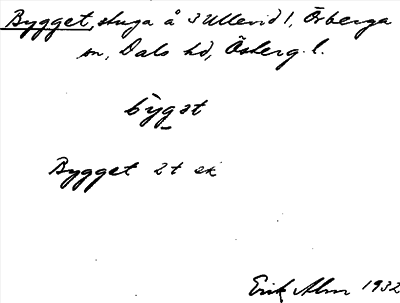 Bygget, stuga å 3 Ullevid 1, Örberga
sn, Dals hd, Österg. l.
bygət
Bygget 2t ex
Erik Alm 1932